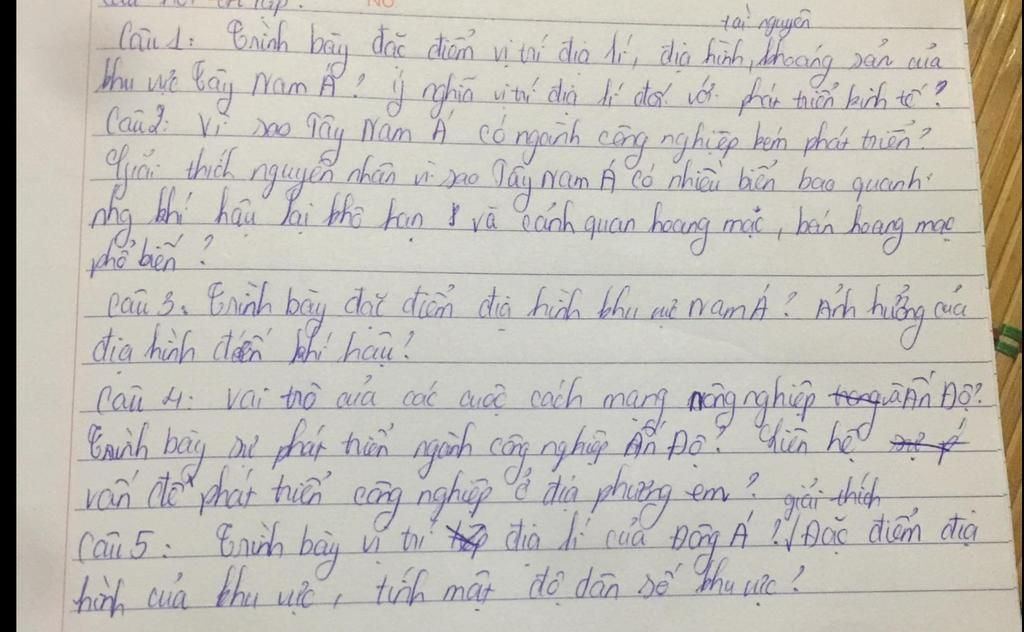 tài nguyên
Câu 1: Trình bày đặc điểm vị trí địa lí, địa hình, khoáng sản của
khu vực Tây Nam Á? Ý nghĩa vị trí địa lí đối với phát triển kinh tế?
Câu 2: Vì sao Tây Nam Á có ngành công nghiệp kém phát triển?
Giải thích nguyên nhân vì sao Tây Nam Á có nhiều biển bao quanh
nhg khí hậu lại khô hạn và cảnh quan hoang mạc, bán hoang mạc
phổ biến?
Câu 3: Trình bày đặc điểm địa hình khu vực Nam Á? Ảnh hưởng của
địa hình đến khí hậu?
Câu 4: Vai trò của các cuộc cách mạng nông nghiệp ở Ấn Độ?
Trình bày sự phát triển ngành công nghiệp Ấn Độ? Liên hệ
vấn đề phát triển công nghiệp ở địa phương em?
giải thích
Câu 5: Trình bày vị trí địa lí của Đông Á? Đặc điểm địa
hình của khu vực, tính mật độ dân số khu vực?